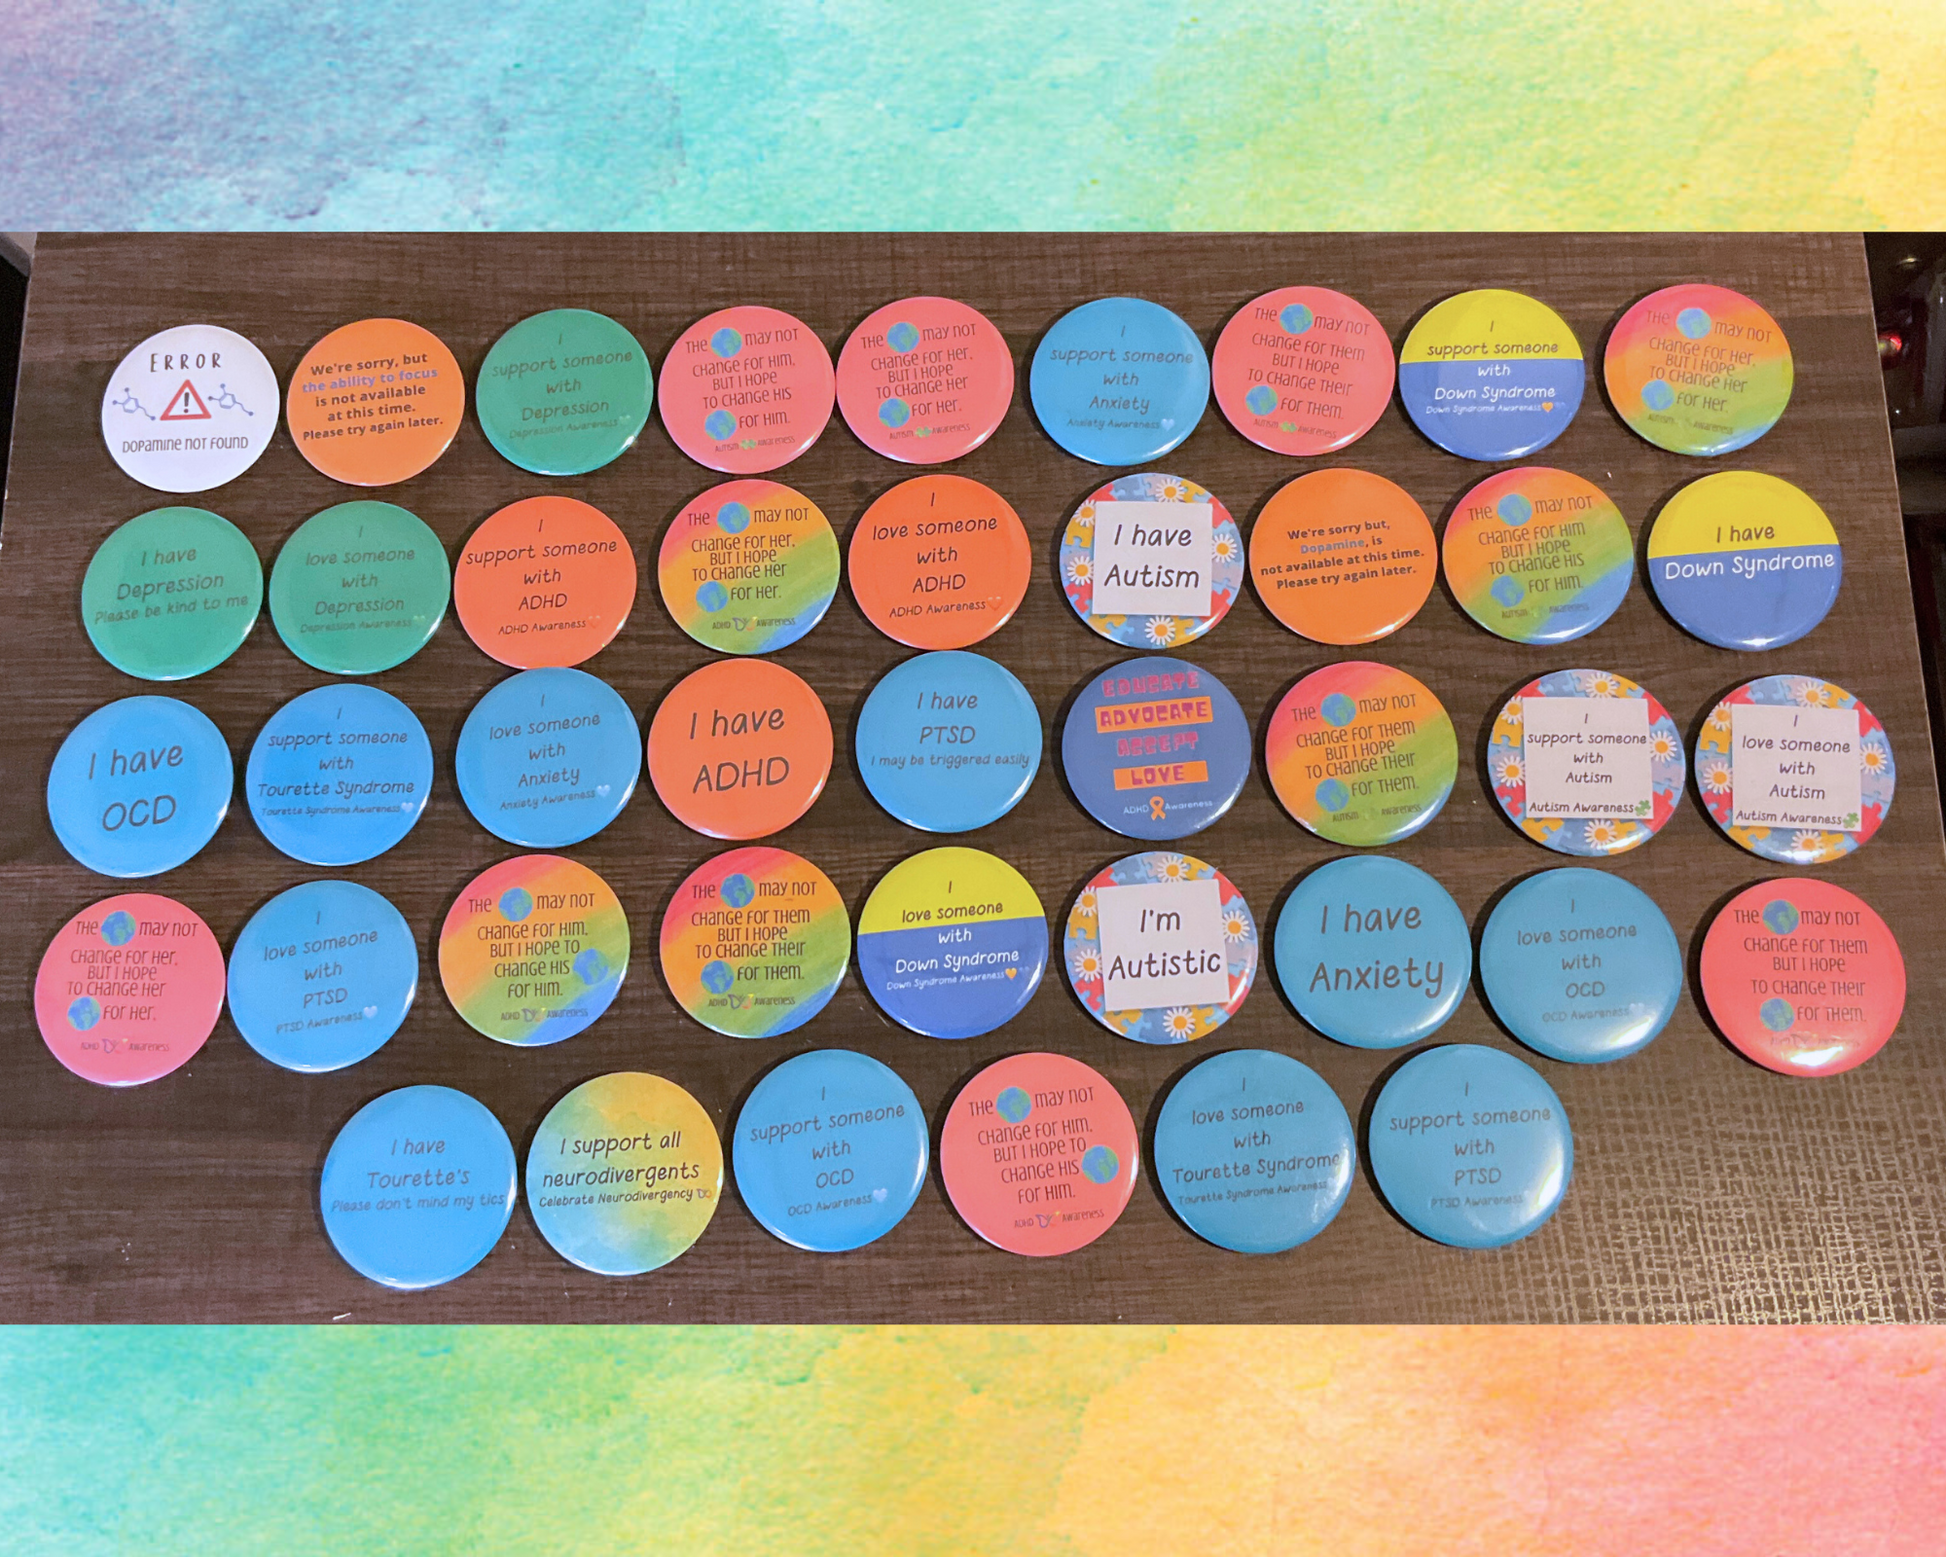 ERROR
DOPAMINE NOT FOUND
We're sorry, but
the ability to focus
is not available
at this time.
Please try again later.
I
support someone
with
Depression
Depression Awareness
THE MAY NOT
CHANGE FOR HIM,
BUT I HOPE
TO CHANGE HIS
FOR HIM.
AUTISM AWARENESS
THE MAY NOT
CHANGE FOR HER,
BUT I HOPE
TO CHANGE HER
FOR HER.
AUTISM AWARENESS
I
support someone
with
Anxiety
Anxiety Awareness
THE MAY NOT
CHANGE FOR THEM
BUT I HOPE
TO CHANGE THEIR
FOR THEM.
AUTISM AWARENESS
I
support someone
with
Down Syndrome
Down Syndrome Awareness
THE MAY NOT
CHANGE FOR HER,
BUT I HOPE
TO CHANGE HER
FOR HER.
AUTISM AWARENESS
I have
Depression
Please be kind to me
I
love someone
with
Depression
Depression Awareness
I
support someone
with
ADHD
ADHD Awareness
THE MAY NOT
CHANGE FOR HER,
BUT I HOPE
TO CHANGE HER
FOR HER.
ADHD AWARENESS
I
love someone
with
ADHD
ADHD Awareness
I have
Autism
We're sorry but,
Dopamine, is
not available at this time.
Please try again later.
THE MAY NOT
CHANGE FOR HIM
BUT I HOPE
TO CHANGE HIS
FOR HIM.
AUTISM AWARENESS
I have
Down Syndrome
I have
OCD
I
support someone
with
Tourette Syndrome
Tourette Syndrome Awareness
I
love someone
with
Anxiety
Anxiety Awareness
I have
ADHD
I have
PTSD
I may be triggered easily
EDUCATE
ADVOCATE
ACCEPT
LOVE
ADHD Awareness
THE MAY NOT
CHANGE FOR THEM
BUT I HOPE
TO CHANGE THEIR
FOR THEM.
AUTISM AWARENESS
I
support someone
with
Autism
Autism Awareness
I
love someone
with
Autism
Autism Awareness
THE MAY NOT
CHANGE FOR HER,
BUT I HOPE
TO CHANGE HER
FOR HER.
ADHD AWARENESS
I
love someone
with
PTSD
PTSD Awareness
THE MAY NOT
CHANGE FOR HIM,
BUT I HOPE TO
CHANGE HIS
FOR HIM.
ADHD AWARENESS
THE MAY NOT
CHANGE FOR THEM
BUT I HOPE
TO CHANGE THEIR
FOR THEM.
ADHD AWARENESS
I
love someone
with
Down Syndrome
Down Syndrome Awareness
I'm
Autistic
I have
Anxiety
I
love someone
with
OCD
OCD Awareness
THE MAY NOT
CHANGE FOR THEM
BUT I HOPE
TO CHANGE THEIR
FOR THEM.
I have
Tourette's
Please don't mind my tics
I support all
neurodivergents
Celebrate Neurodivergency
I
support someone
with
OCD
OCD Awareness
THE MAY NOT
CHANGE FOR HIM,
BUT I HOPE TO
CHANGE HIS
FOR HIM.
ADHD AWARENESS
I
love someone
with
Tourette Syndrome
Tourette Syndrome Awareness
I
support someone
with
PTSD
PTSD Awareness